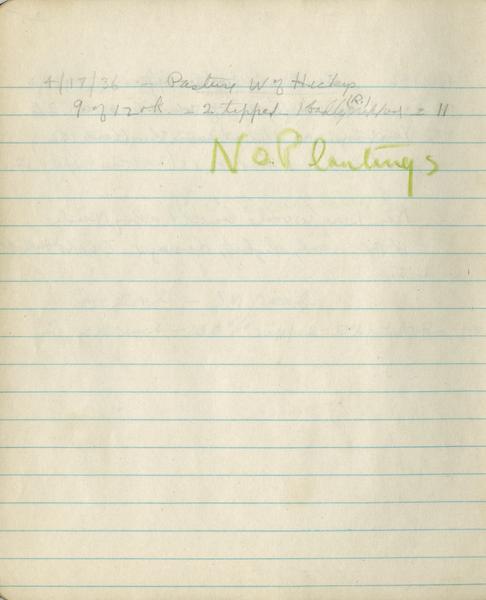 4/17/36 - Pasture W of Hickeys
9 of 12 ok - 2 tipped 1 badly (R.) = 11
No. Plantings